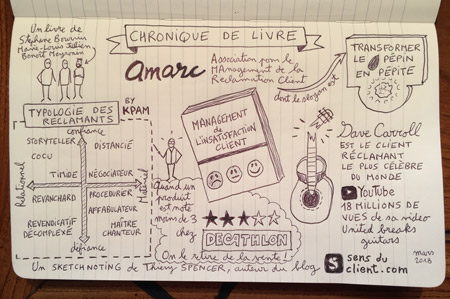 CHRONIQUE DE LIVRE
Un livre de
Stéphane Bourrier
Marie-Louise Jullien
Benoît Meyronin
amarc
Association pour le
MAnagement de la
Réclamation Client
dont le slogan est
TRANSFORMER
LE PÉPIN
EN PÉPITE
TYPOLOGIE DES
RÉCLAMANTS
BY
KPAM
confiance
STORYTELLER
DISTANCIÉ
COCU
TIMIDE
NÉGOCIATEUR
Relationnel
Matériel
REVANCHARD
PROCÉDURIER
AFFABULATEUR
REVENDICATIF
DÉCOMPLEXÉ
MAÎTRE
CHANTEUR
défiance
MANAGEMENT
DE
L'INSATISFACTION
CLIENT
Quand un
produit
est noté
moins de 3
chez
DECATHLON
On le retire de la vente !
Dave Carroll
EST LE CLIENT
RÉCLAMANT
LE PLUS CÉLÈBRE
DU MONDE
YouTube
18 MILLIONS DE
VUES de sa video
United breaks
guitars
mars
2018
Un SKETCHNOTING de Thierry SPENCER, auteur du blog
S
sens du
client.com